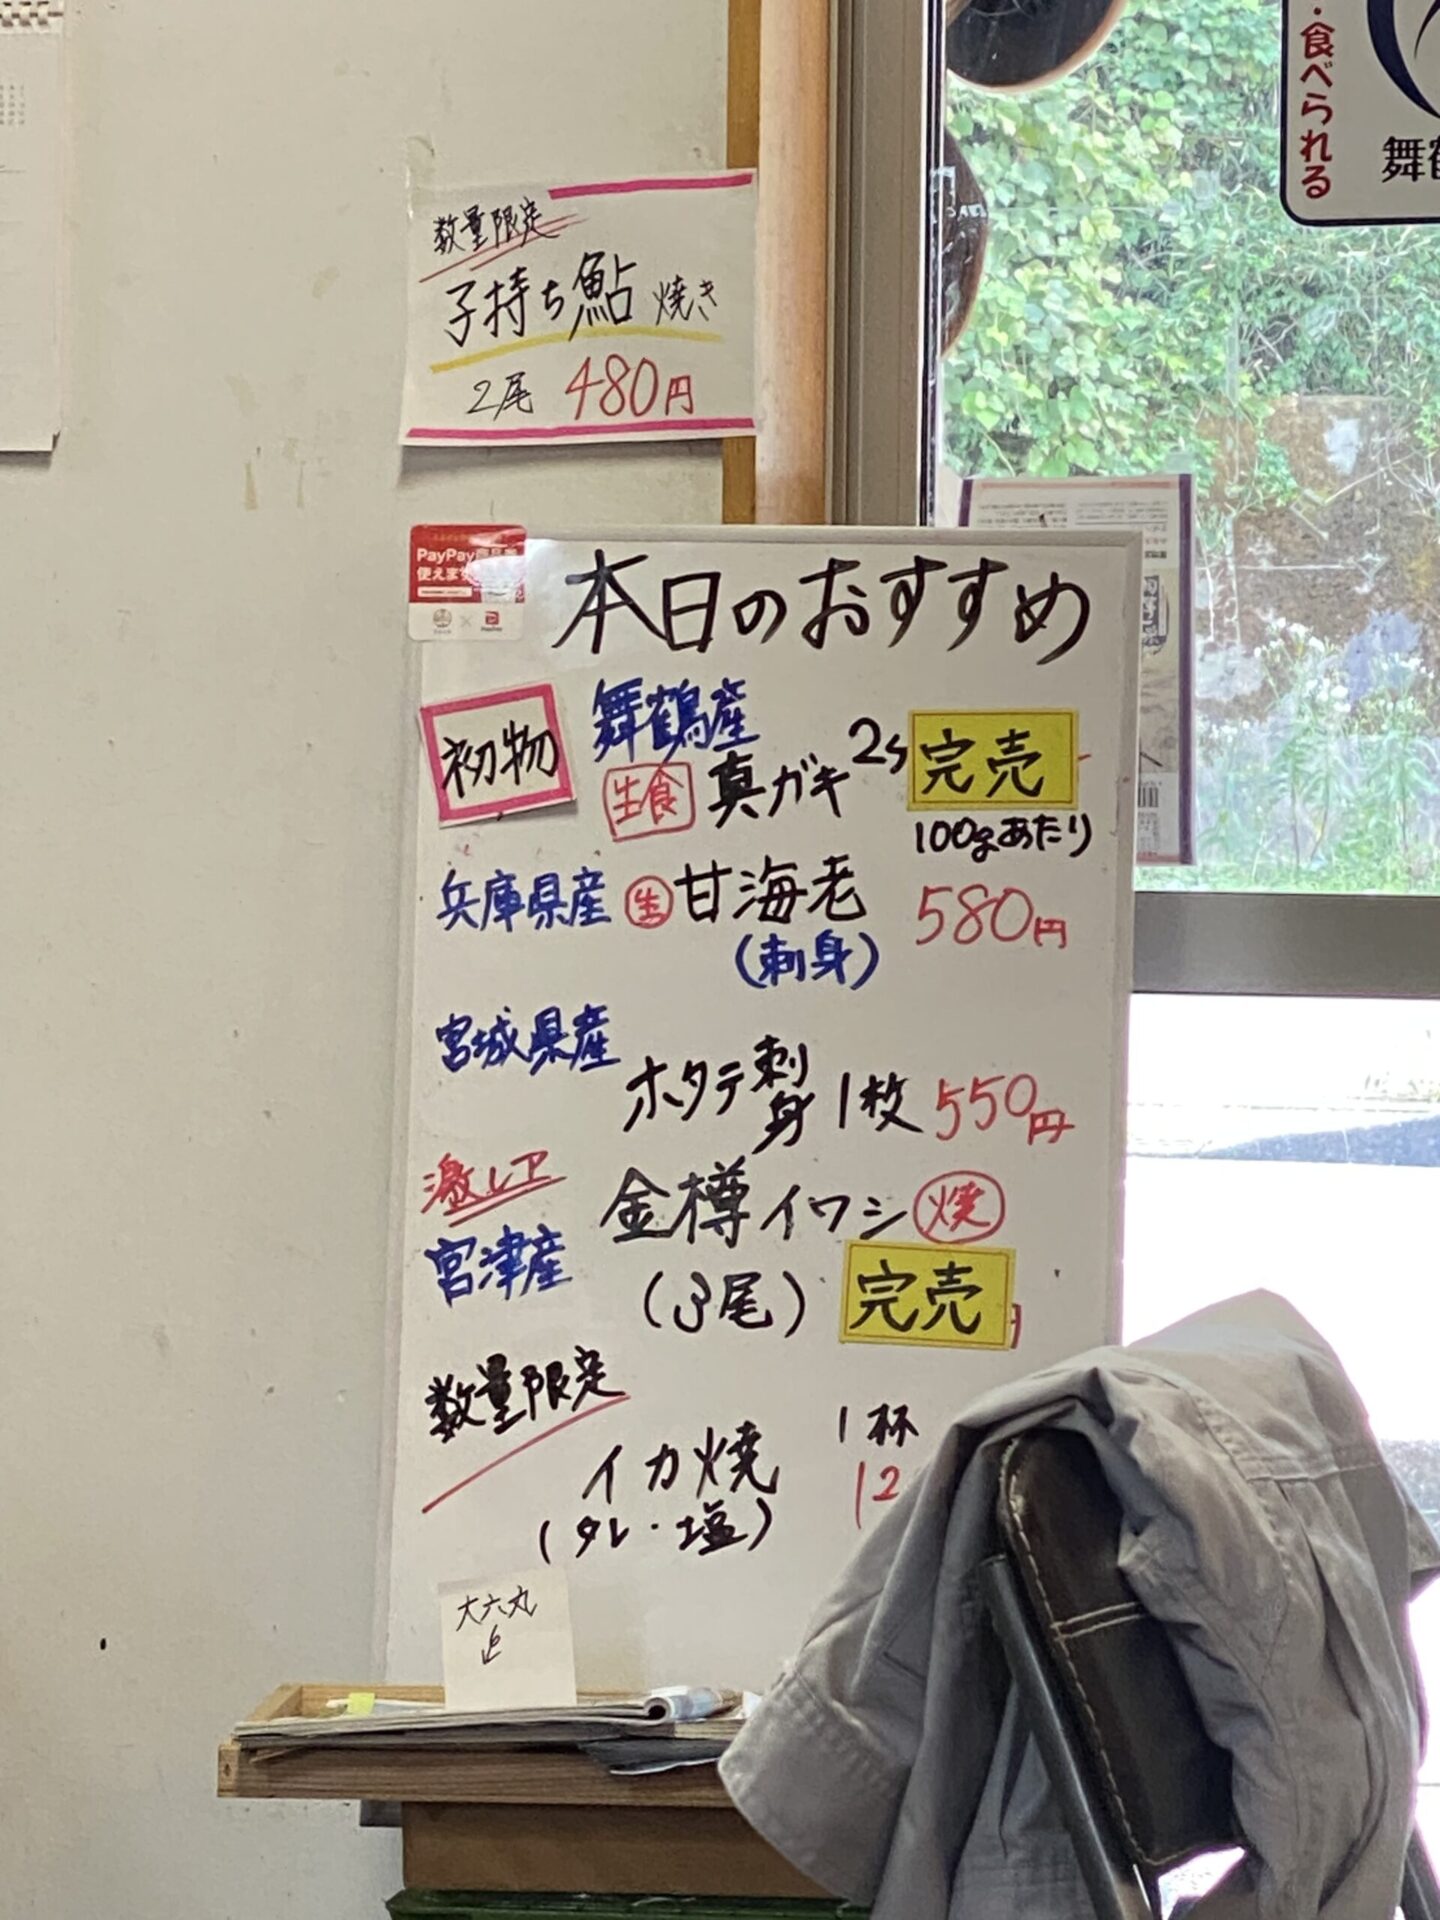 ・食べられる
舞鶴
数量限定
子持ち鮎 焼き
2尾 480円
PayPay商品券
使えます
本日のおすすめ
初物
舞鶴産
生食 真ガキ 2ケ 完売
兵庫県産 生 甘海老 100gあたり 580円
(刺身)
宮城県産
ホタテ刺身 1枚 550円
激レア
宮津産
金樽イワシ 焼
(3尾) 完売
数量限定
イカ焼 1杯
(タレ・塩) 12
大六丸